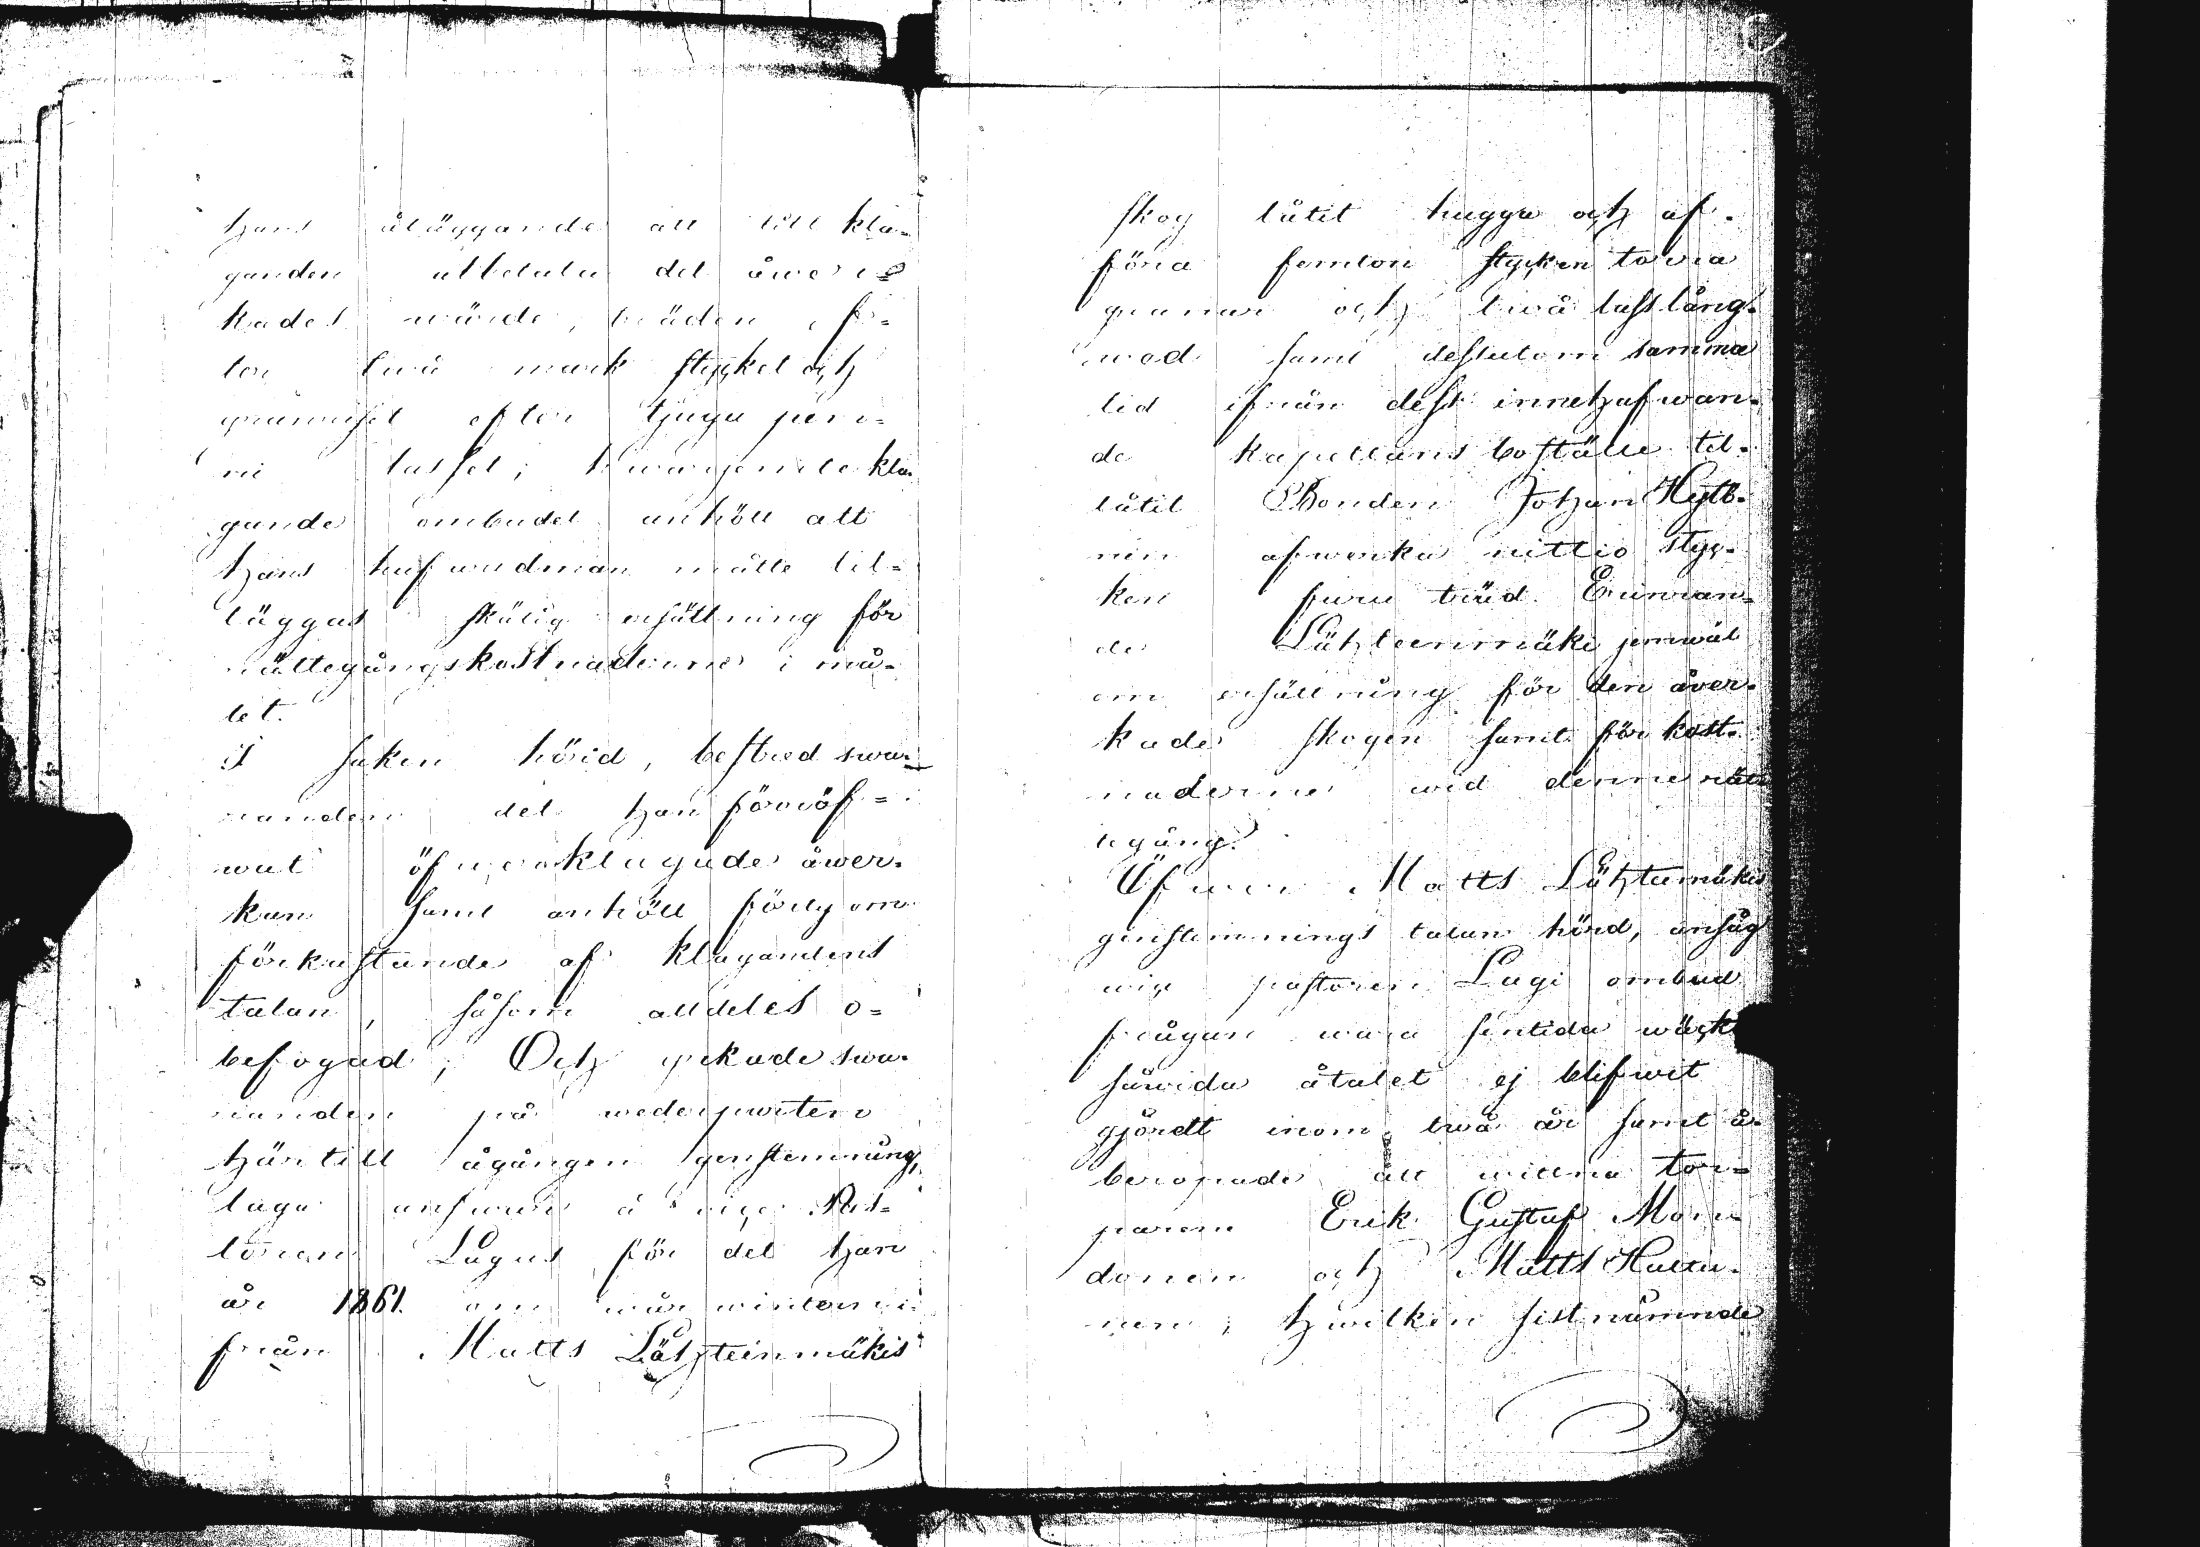 hans åläggande att till kla-
ganden utbetala det åwer-
kades wärde, träden ef-
ter twå mark stycket och
grannriset efter tjugu pen-
ni lasset; hwarjemte kla-
gande ombudet anhöll att
hans hufwudman måtte til-
läggas skälig ersättning för
rättegångskostnaderne i må-
let.
I saken hörd, bestred swa-
randen det han föröf-
wat öfwerklagade åwer-
kan samt anhöll förty om
förkastande af klagandens
talan, såsom alldeles o-
befogad; Och yrkade swa-
randen på wederpartens
härtill ågången genstemning,
laga answar å vice Pas-
toren Lagus för det han
år 1861. om wår wintern i-
från Matts Lähteinmäkis
skog låtit hugga och af-
föra femton stycken torra
granar och twå lass lång-
wed samt dessutom samma
tid ifrån dess innehafwan-
de kapellans boställe til-
låtit Bonden Johan Hytö-
nen afwerka nittio styc-
ken furu träd. Erinran-
de Lähteenmäki jemwäl
om ersättning för den åver-
kade skogen samt för kost-
naderne wid denne rät-
tegång.
Öfwer Matts Lähteemäkis
genstemnings talan hörd, ansåg
vice pastoren Lagi ombud
frågan wara sentida wäckt
såwida åtalet ej blifwit
gjordt inom twå år samt å-
beropade att wittna tor-
paren Erik Gustaf Mon-
donen och Matts Haltu-
nen, hwilken sistnämnde